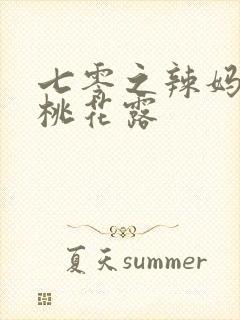 七零之辣妈
桃花露
夏天summer